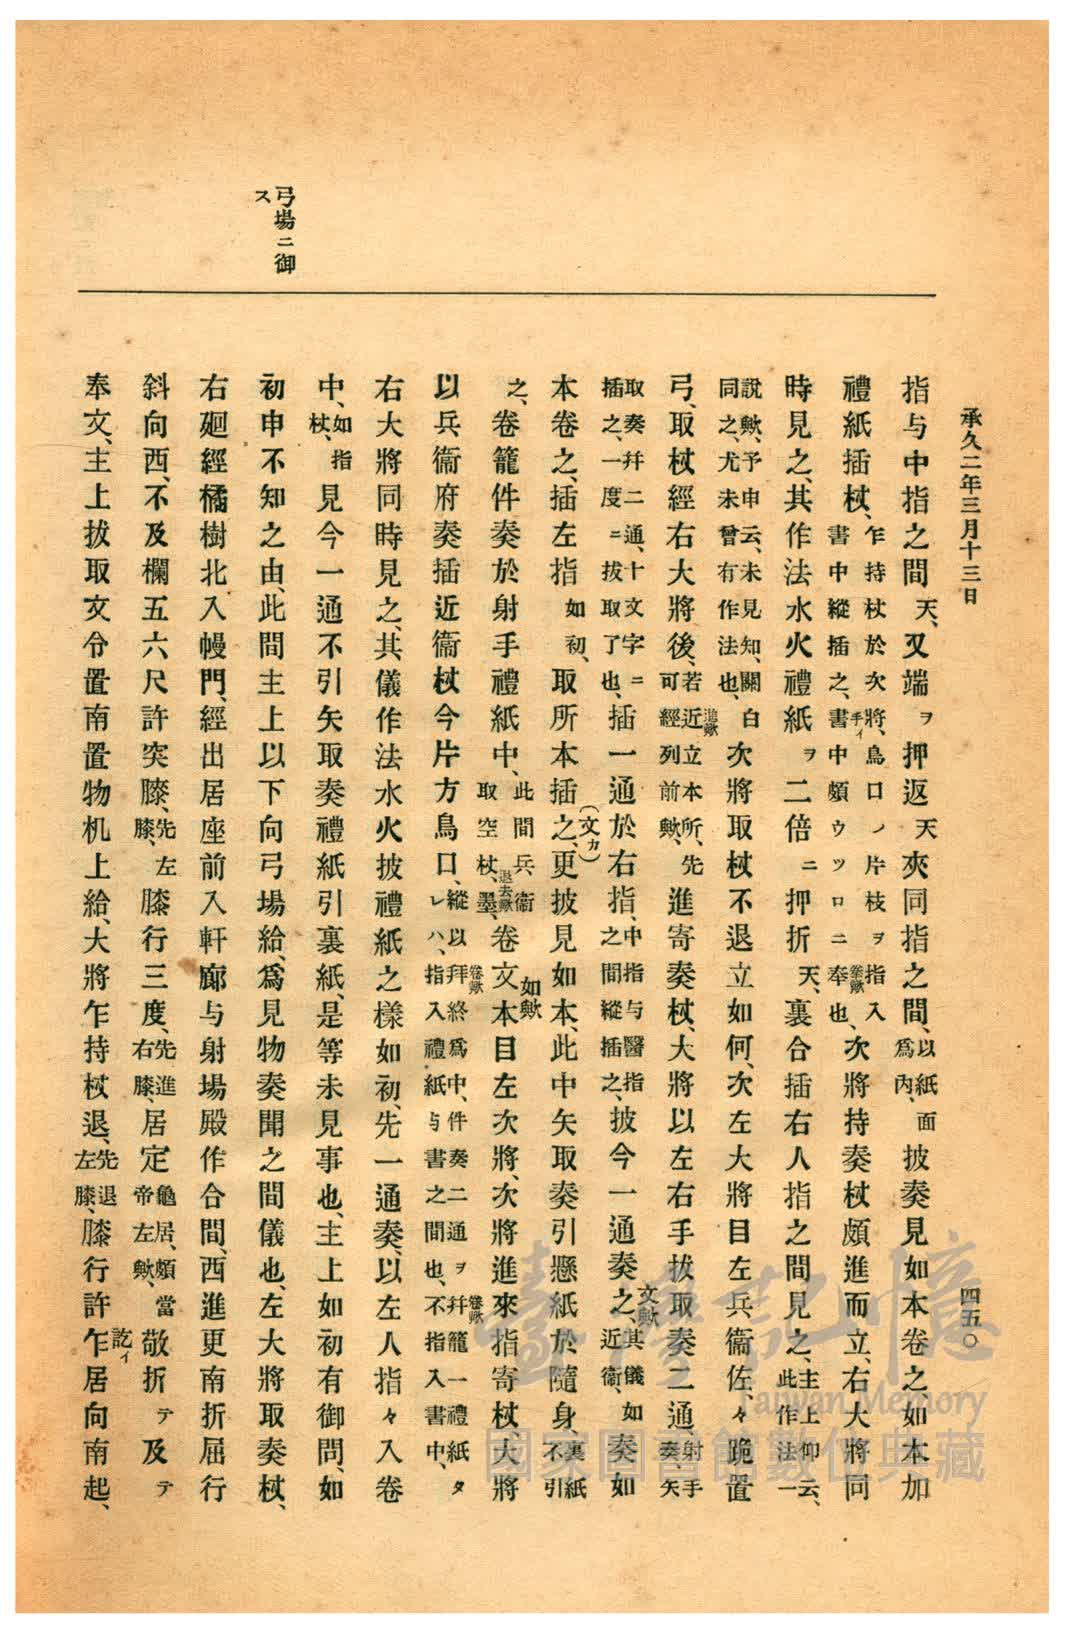 承久二年三月十三日
四五〇
弓場ニ御
ス
指与中指之間天、又端ヲ押返天夾同指之間、以紙面爲内、披奏見如本卷之如本加
禮紙插杖、乍持杖於次將、鳥口ノ片枝ヲ指入書中縱插之、書中頗ウツロニ奉也、次將持奏杖頗進而立、右大將同
時見之、其作法水火禮紙ヲ二倍ニ押折天、裏合插右人指之間見之、主上仰云、此作法一
說歟、予申云、未見知、關白同之、尤未曾有作法也、次將取杖不退立如何、次左大將目左兵衞佐、々跪置
弓、取杖經右大將後、若近立本所、先可經列前歟、進寄奏杖、大將以左右手拔取奏二通、射手奏、矢
取奏幷二通、十文字ニ插之、一度ニ拔取了也、插一通於右指、中指与醫指之間縱插之、披今一通奏之、其儀如近衞、奏如
本卷之、插左指如初、取所本插之、更披見如本、此中矢取奏引懸紙於隨身裏紙不引
之、卷籠件奏於射手禮紙中、此間兵衞取空杖、墨、卷文本目左次將、次將進來指寄杖、大將
以兵衞府奏插近衞杖今片方鳥口、縱以拜終爲中、件奏二通ヲ幷籠一禮紙タレハ、指入禮紙与書之間也、不指入書中、
右大將同時見之、其儀作法水火披禮紙之樣如初、先一通奏、以左人指々入卷
中、如指杖、見今一通不引矢取奏禮紙引裏紙、是等未見事也、主上如初有御問、如
初申不知之由、此間主上以下向弓場給、爲見物奏聞之間儀也、左大將取奏杖、
右廻經橘樹北入幔門、經出居座前入軒廊与射場殿作合間、西進更南折屈行
斜向西、不及欄五六尺許突膝、先左膝、膝行三度、先進右膝、居定龜居、頗當帝左歟、敬折テ及テ
奉文、主上拔取文令置南置物机上給、大將乍持杖退、先退左膝、膝行許乍居向南起、
手イ
卷歟
進歟
(文カ)
文歟
退去歟
如歟
卷歟
卷歟
訖イ
臺灣記憶
Taiwan Memory
國家圖書館數位典藏